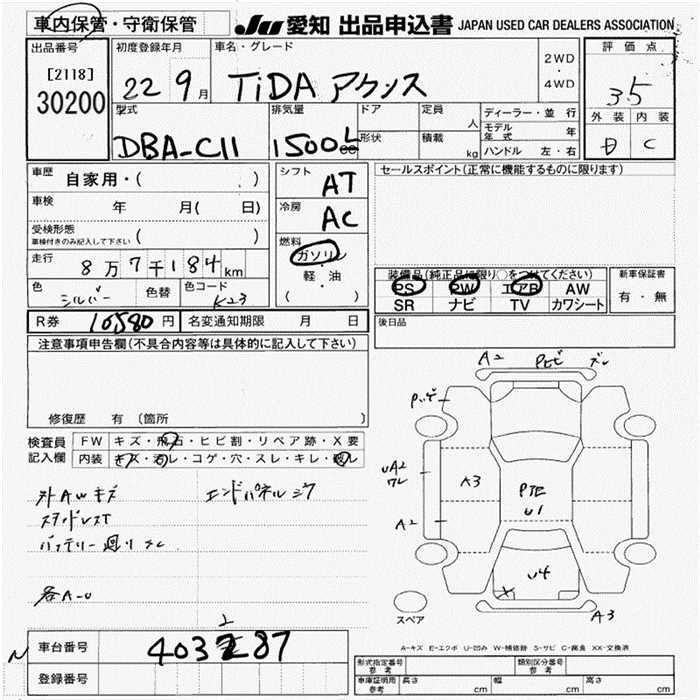 車内保管・守衛保管
JU 愛知 出品申込書 JAPAN USED CAR DEALERS ASSOCIATION
出品番号
[2118]
30200
初度登録年月
22 9月
車名・グレード
TiDA アクシス
2WD
・
4WD
評価点
3.5
外装 内装
D C
型式
DBA-C11
排気量
1500 L
cc
ドア
形状
定員
人
積載
kg
ディーラー・並行
モデル年式 年
ハンドル 左・右
車歴
自家用・( )
車検
年 月( 日)
受検形態
車検付きのみ記入して下さい ( )
走行
8万7千184km
色
シルバー
色替
色コード
K23
シフト
AT
冷房
AC
燃料
ガソリン
・
軽・油
( ・ )
セールスポイント(正常に機能するものに限ります)
装備品(純正品に限り○をつけてください)
PS PW エアB AW
SR ナビ TV カワシート
新車保証書
有・無
R券 10,580円 名変通知期限 月 日
後日品
注意事項申告欄(不具合内容等は具体的に記入して下さい)
修復歴 有 (箇所 )
検査員
記入欄
FW キズ・飛石・ヒビ割・リペア跡・X要
内装 キズ・汚レ・コゲ・穴・スレ・キレ・破レ
外AWキズ エンドパネルシワ
スタッドレスT
バッテリー廻りサビ
各A-U
A2
A3
UA2
ワレ
A2
U1
U4
A3
スペア
A-キズ E-エクボ U-凹み W-補修跡 S-サビ C-腐食 XX-交換済
車台番号
403287
2
登録番号
型式指定番号
参考
類別区分番号
参考
車庫証明用
参考
長さ cm 幅 cm 高さ cm